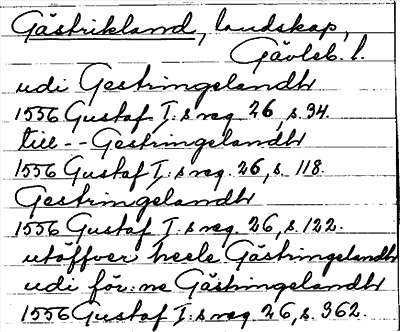 Gästrikland, landskap,
Gävleb. l.
udi Gestringelandh
1556 Gustaf I:s reg. 26, s. 94.
till -- Gestringelandh
1556 Gustaf I:s reg. 26, s. 118.
Gestringelandh
1556 Gustaf I:s reg. 26, s. 122.
utöffver heele Gästringelandh
udi för:ne Gästringelandh
1556 Gustaf I:s reg. 26, s. 362.